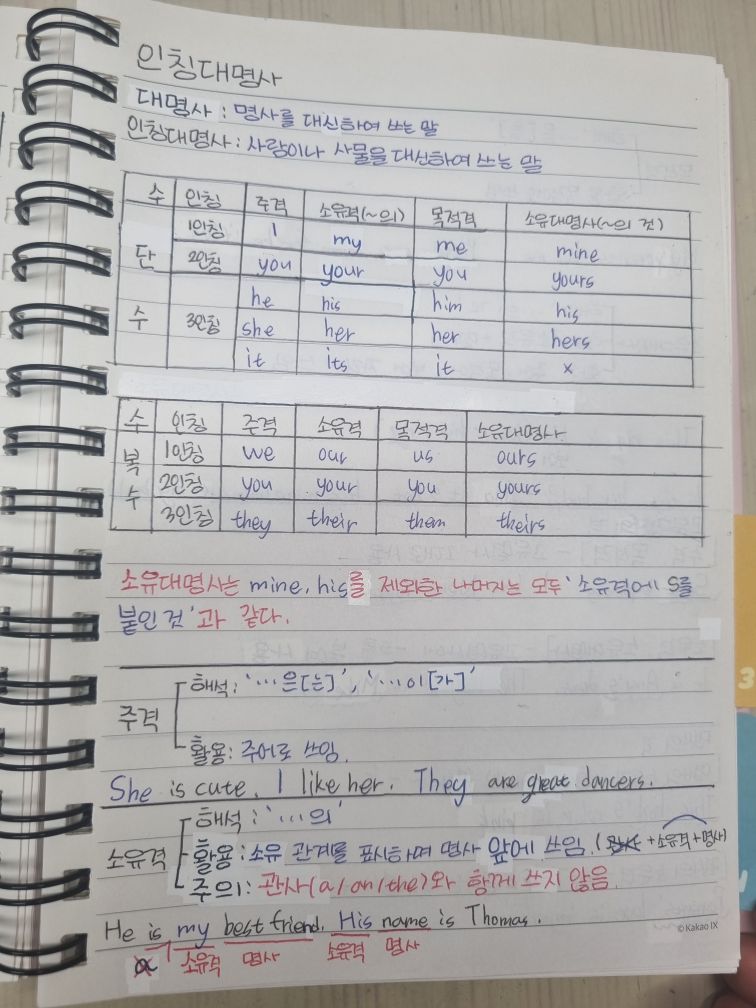 인칭대명사
대명사 : 명사를 대신하여 쓰는 말
인칭대명사 : 사람이나 사물을 대신하여 쓰는 말
수 인칭 주격 소유격(~의) 목적격 소유대명사(~의 것)
단수 1인칭 I my me mine
2인칭 you your you yours
3인칭 he his him his
she her her hers
it its it x
수 인칭 주격 소유격 목적격 소유대명사
복수 1인칭 we our us ours
2인칭 you your you yours
3인칭 they their them theirs
소유대명사는 mine, his를 제외한 나머지는 모두 '소유격에 s를
붙인 것'과 같다.
주격
해석 : '…은[는]', '…이[가]'
활용 : 주어로 쓰임.
She is cute. I like her. They are great dancers.
소유격
해석 : '…의'
활용 : 소유 관계를 표시하며 명사 앞에 쓰임. (관사 +소유격+명사)
주의 : 관사(a/an/the)와 함께 쓰지 않음.
He is my best friend. His name is Thomas.
a 소유격 명사 소유격 명사
© Kakao IX
3